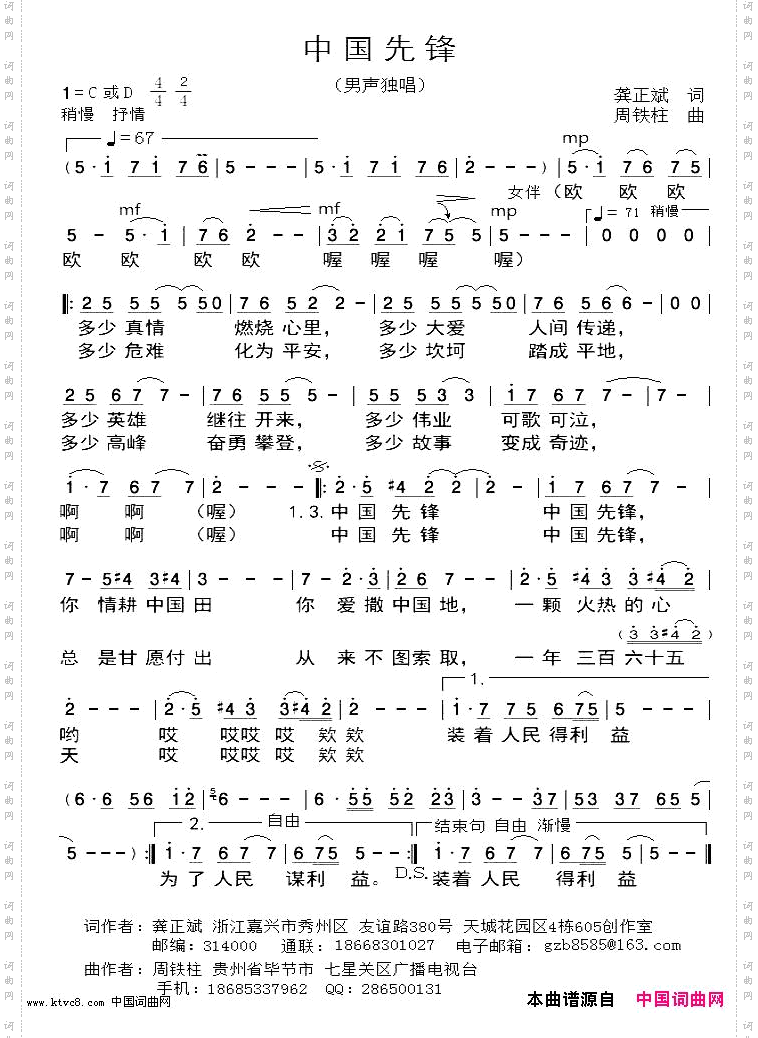 中国先锋
（男声独唱）
1=C 或D 4/4 2/4
龚正斌 词
稍慢 抒情
周铁柱 曲
♩=67
mp
(5·i 7i 76|5---|5·i 7i 76|2---)|5·i 76 75|
女伴（欧 欧 欧
mf mf mp ♩=71 稍慢
5-5·i|76 2--|32 21 75 5|5---|0 0 0 0|
欧 欧 欧 欧 喔 喔 喔 喔）
‖:25 55 5 550|76 52 2-|25 55550|76 566-|00|
多少真情 燃烧心里， 多少大爱 人间传递，
多少危难 化为平安， 多少坎坷 踏成平地，
25 67 7-|76 55 5-|25 55 33|i7 67 7-|7-|
多少英雄 继往开来， 多少伟业 可歌可泣，
多少高峰 奋勇攀登， 多少故事 变成奇迹，
i·7 67 7|2--‖:2·5 #42 2|2-|i7 67 7-|
啊 啊 （喔） 1.3.中国先锋 中国先锋，
啊 啊 （喔） 中国先锋 中国先锋，
7-5#4 3#4|3--|7-2·3|26 7-|2·5 #43 3#42|
你 情耕中国田 你 爱撒中国地， 一颗 火热的心
(3 3#42)
总 是甘愿付出 从 来不图索取， 一年 三百六十五
1.
2---|2·5 #43 3#42|2---|i·7 75 675|5---|
哟 哎 哎哎哎 欸欸 装着人民得利 益
天 哎 哎哎哎 欸欸
(6·6 56 i2|6---|6·55 52 23|3--37|53 67 55|
2. 自由 结束句 自由 渐慢
5---):‖i·7 67 7|675 5--:‖i·7 67 7|6·75 5|5--‖
为了人民 谋利 益。 D.S. 装着人民 得利 益
词作者：龚正斌 浙江嘉兴市秀州区 友谊路380号 天城花园区4栋605创作室
邮编：314000 通联：18668301027 电子邮箱：gzb8585@163.com
曲作者：周铁柱 贵州省毕节市 七星关区广播电视台
手机：18685337962 QQ：286500131
www.ktvc8.com 中国词曲网
本曲谱源自 中国词曲网